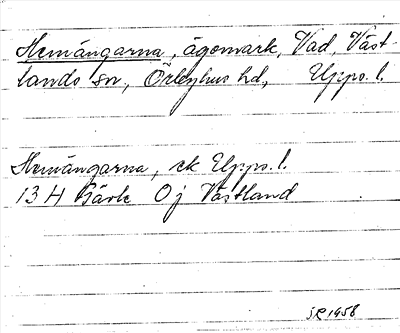 Hemängarna, ägomark, Vad, Väst-
lands sn, Örbyhus hd, Upps. l.
Hemängarna, ek Upps. l.
13 H Gävle 0 j Västland
SR 1958